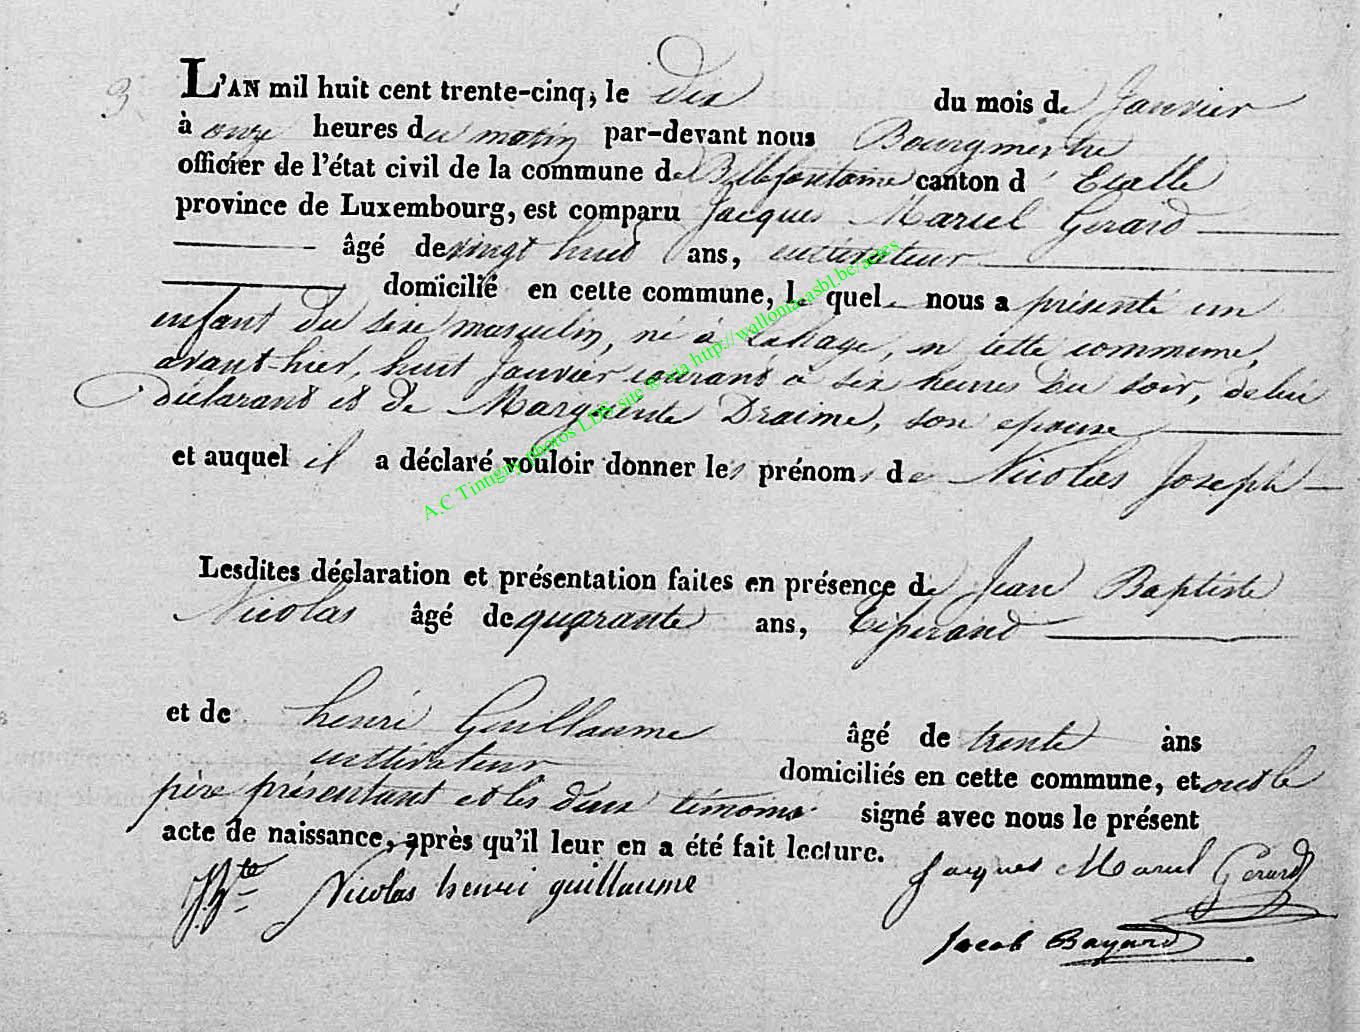 3
L'AN mil huit cent trente-cinq, le dix du mois de Janvier
à onze heures du matin par-devant nous Bourgmestre
officier de l'état civil de la commune de Bellefontaine canton d'Etalle
province de Luxembourg, est comparu Jacques Marcel Gerard
âgé de vingt huit ans, cultivateur
domicilié en cette commune, le quel nous a présenté un
enfant du sexe masculin, né à Lahage, en cette commune,
avant-hier, huit Janvier courant à six heures du soir, de lui
déclarant et de Marguerite Draime, son epouse
et auquel il a déclaré vouloir donner les prénoms de Nicolas Joseph
Lesdites déclaration et présentation faites en présence de Jean Baptiste
Nicolas âgé de quarante ans,
et de henri Guillaume âgé de trente ans
cultivateur domiciliés en cette commune, et ont le
père présentant et les deux témoins signé avec nous le présent
acte de naissance, après qu'il leur en a été fait lecture.
J. Bte Nicolas henri guillaume Jacques Marcel Gerard
Jacob Bayard
A.C Tintigny photos LDS site @ via http://wallonia-asbl.be/actes